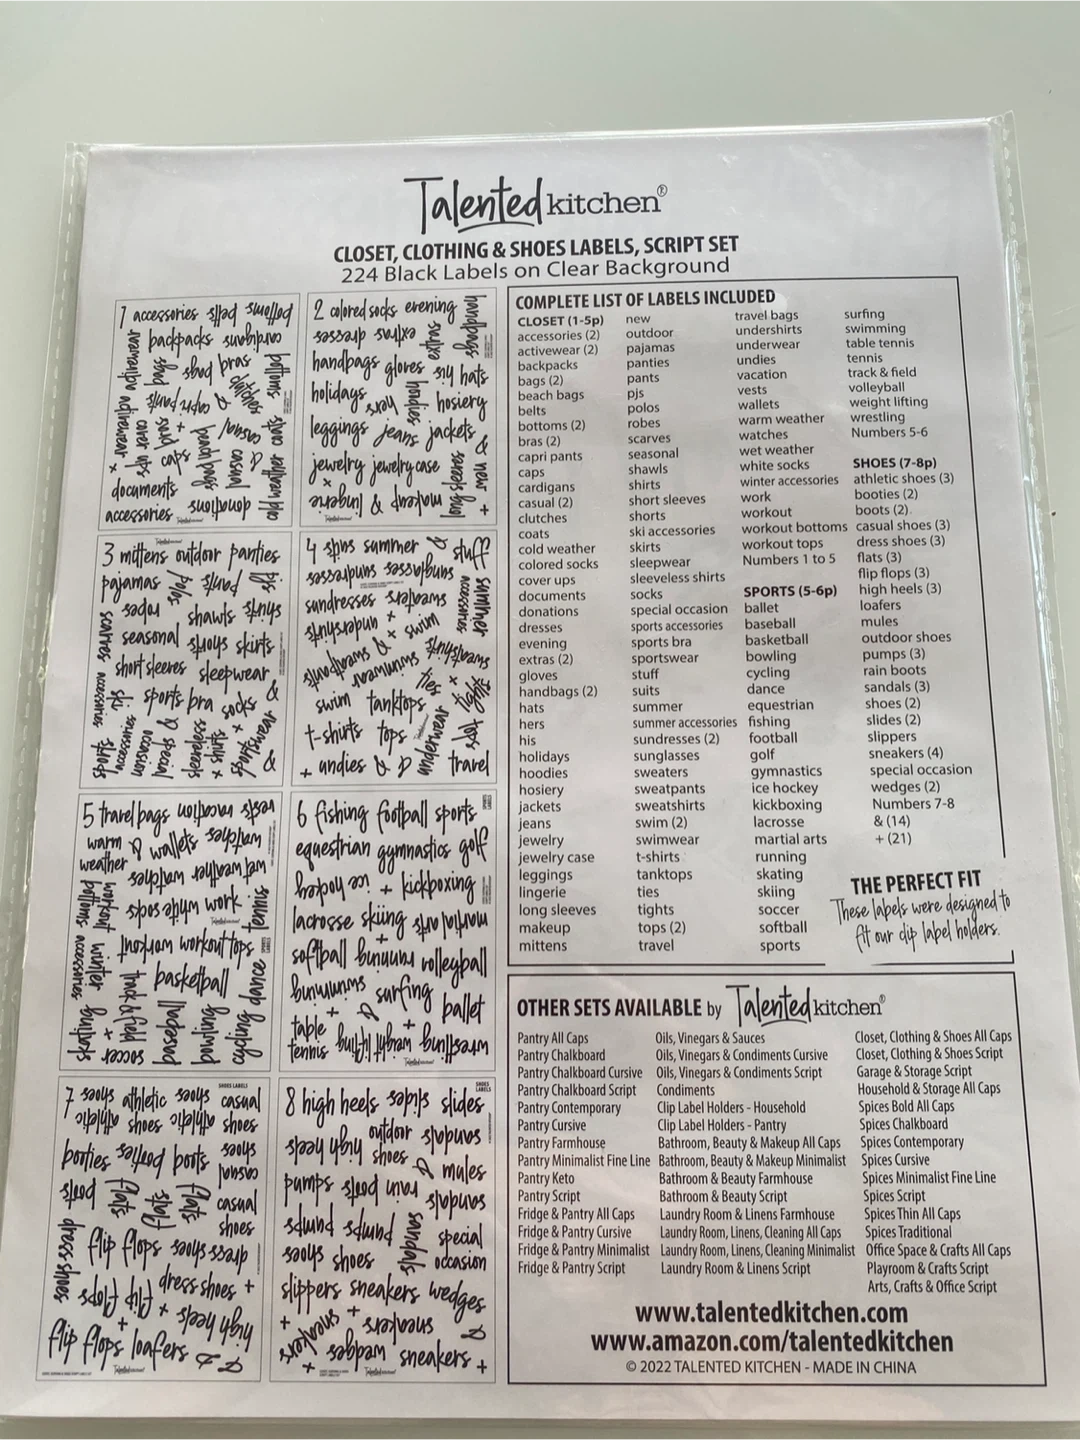 Talented kitchen®
CLOSET, CLOTHING & SHOES LABELS, SCRIPT SET
224 Black Labels on Clear Background
1 accessories belts bottoms
backpacks cardigans
bags bras
clutches
capri pants
cover ups
caps
beach bags
casual
documents
accessories donations
2 colored socks evening handbags
dresses extras
handbags gloves
holidays hers hoodies his hats
hosiery
leggings jeans jackets &
jewelry jewelry case
lingerie & makeup long sleeves new +
3 mittens outdoor panties
pajamas polos pants pjs
robes shawls shirts
scarves seasonal shorts skirts
short sleeves sleepwear
sports bra socks &
ski accessories special occasion
4 suits summer & stuff
sundresses sunglasses summer accessories
sundresses sweaters
undershirts + swim
sweatpants & sweatshirts
swimwear
swim tanktops ties
t-shirts tops
+ undies & underwear travel
5 travel bags vacation vests
warm weather & wallets watches
wet weather watches
white socks work
workout bottoms winter accessories
workout workout tops
track & field basketball
soccer baseball bowling cycling dance
6 fishing football sports
equestrian gymnastics golf
hockey ice + kickboxing
lacrosse skiing martial arts
softball running volleyball
swimming surfing ballet
table tennis weight lifting wrestling
7 shoes athletic shoes casual
SHOES LABELS
athletic shoes athletic shoes
booties booties boots
shoes casual
boots flats flats flats casual shoes
dress shoes flip flops dress shoes
flip flops flip flops dress shoes +
high heels
flip flops loafers &
8 high heels slides slides
SHOES LABELS
high heels outdoor shoes sandals
& mules
pumps rain boots sandals
pumps pumps sandals special occasion
shoes shoes
slippers sneakers wedges
+ sneakers + sneakers &
+ wedges sneakers +
COMPLETE LIST OF LABELS INCLUDED
CLOSET (1-5p)
accessories (2)
activewear (2)
backpacks
bags (2)
beach bags
belts
bottoms (2)
bras (2)
capri pants
caps
cardigans
casual (2)
clutches
coats
cold weather
colored socks
cover ups
documents
donations
dresses
evening
extras (2)
gloves
handbags (2)
hats
hers
his
holidays
hoodies
hosiery
jackets
jeans
jewelry
jewelry case
leggings
lingerie
long sleeves
makeup
mittens
new
outdoor
pajamas
panties
pants
pjs
polos
robes
scarves
seasonal
shawls
shirts
short sleeves
shorts
ski accessories
skirts
sleepwear
sleeveless shirts
socks
special occasion
sports accessories
sports bra
sportswear
stuff
suits
summer
summer accessories
sundresses (2)
sunglasses
sweaters
sweatpants
sweatshirts
swim (2)
swimwear
t-shirts
tanktops
ties
tights
tops (2)
travel
travel bags
undershirts
underwear
undies
vacation
vests
wallets
warm weather
watches
wet weather
white socks
winter accessories
work
workout
workout bottoms
workout tops
Numbers 1 to 5
SPORTS (5-6p)
ballet
baseball
basketball
bowling
cycling
dance
equestrian
fishing
football
golf
gymnastics
ice hockey
kickboxing
lacrosse
martial arts
running
skating
skiing
soccer
softball
sports
surfing
swimming
table tennis
tennis
track & field
volleyball
weight lifting
wrestling
Numbers 5-6
SHOES (7-8p)
athletic shoes (3)
booties (2)
boots (2)
casual shoes (3)
dress shoes (3)
flats (3)
flip flops (3)
high heels (3)
loafers
mules
outdoor shoes
pumps (3)
rain boots
sandals (3)
shoes (2)
slides (2)
slippers
sneakers (4)
special occasion
wedges (2)
Numbers 7-8
& (14)
+ (21)
THE PERFECT FIT
These labels were designed to
fit our clip label holders.
OTHER SETS AVAILABLE by Talented kitchen®
Pantry All Caps
Pantry Chalkboard
Pantry Chalkboard Cursive
Pantry Chalkboard Script
Pantry Contemporary
Pantry Cursive
Pantry Farmhouse
Pantry Minimalist Fine Line
Pantry Keto
Pantry Script
Fridge & Pantry All Caps
Fridge & Pantry Cursive
Fridge & Pantry Minimalist
Fridge & Pantry Script
Oils, Vinegars & Sauces
Oils, Vinegars & Condiments Cursive
Oils, Vinegars & Condiments Script
Condiments
Clip Label Holders - Household
Clip Label Holders - Pantry
Bathroom, Beauty & Makeup All Caps
Bathroom, Beauty & Makeup Minimalist
Bathroom & Beauty Farmhouse
Bathroom & Beauty Script
Laundry Room & Linens Farmhouse
Laundry Room, Linens, Cleaning All Caps
Laundry Room, Linens, Cleaning Minimalist
Laundry Room & Linens Script
Closet, Clothing & Shoes All Caps
Closet, Clothing & Shoes Script
Garage & Storage Script
Household & Storage All Caps
Spices Bold All Caps
Spices Chalkboard
Spices Contemporary
Spices Cursive
Spices Minimalist Fine Line
Spices Script
Spices Thin All Caps
Spices Traditional
Office Space & Crafts All Caps
Playroom & Crafts Script
Arts, Crafts & Office Script
www.talentedkitchen.com
www.amazon.com/talentedkitchen
© 2022 TALENTED KITCHEN - MADE IN CHINA